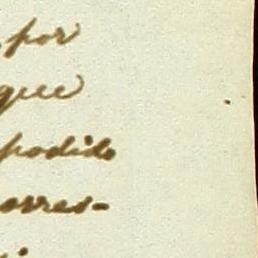 por
que
podido
orres-